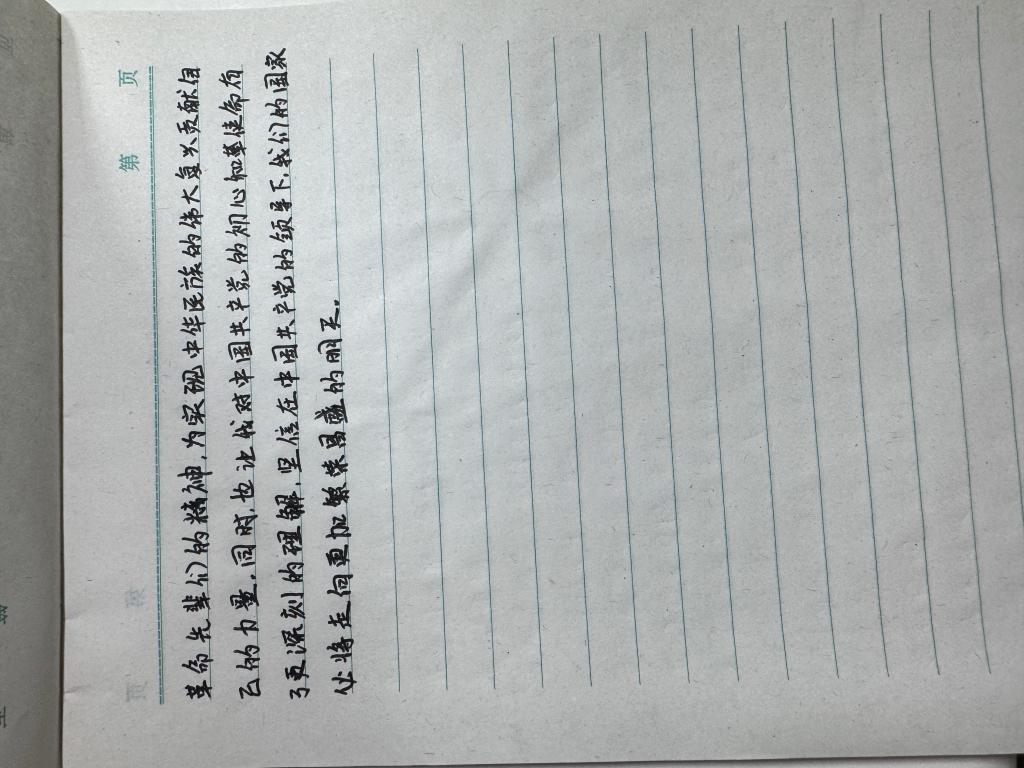 第 页
革命先辈们的精神,为实现中华民族的伟大复兴贡献自
己的力量.同时,也让我对中国共产党的初心和革使命有
了更深刻的理解,坚信在中国共产党的领导下,我们的国家
必将走向更加繁荣昌盛的明天.